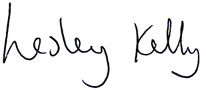 Lesley Kelly